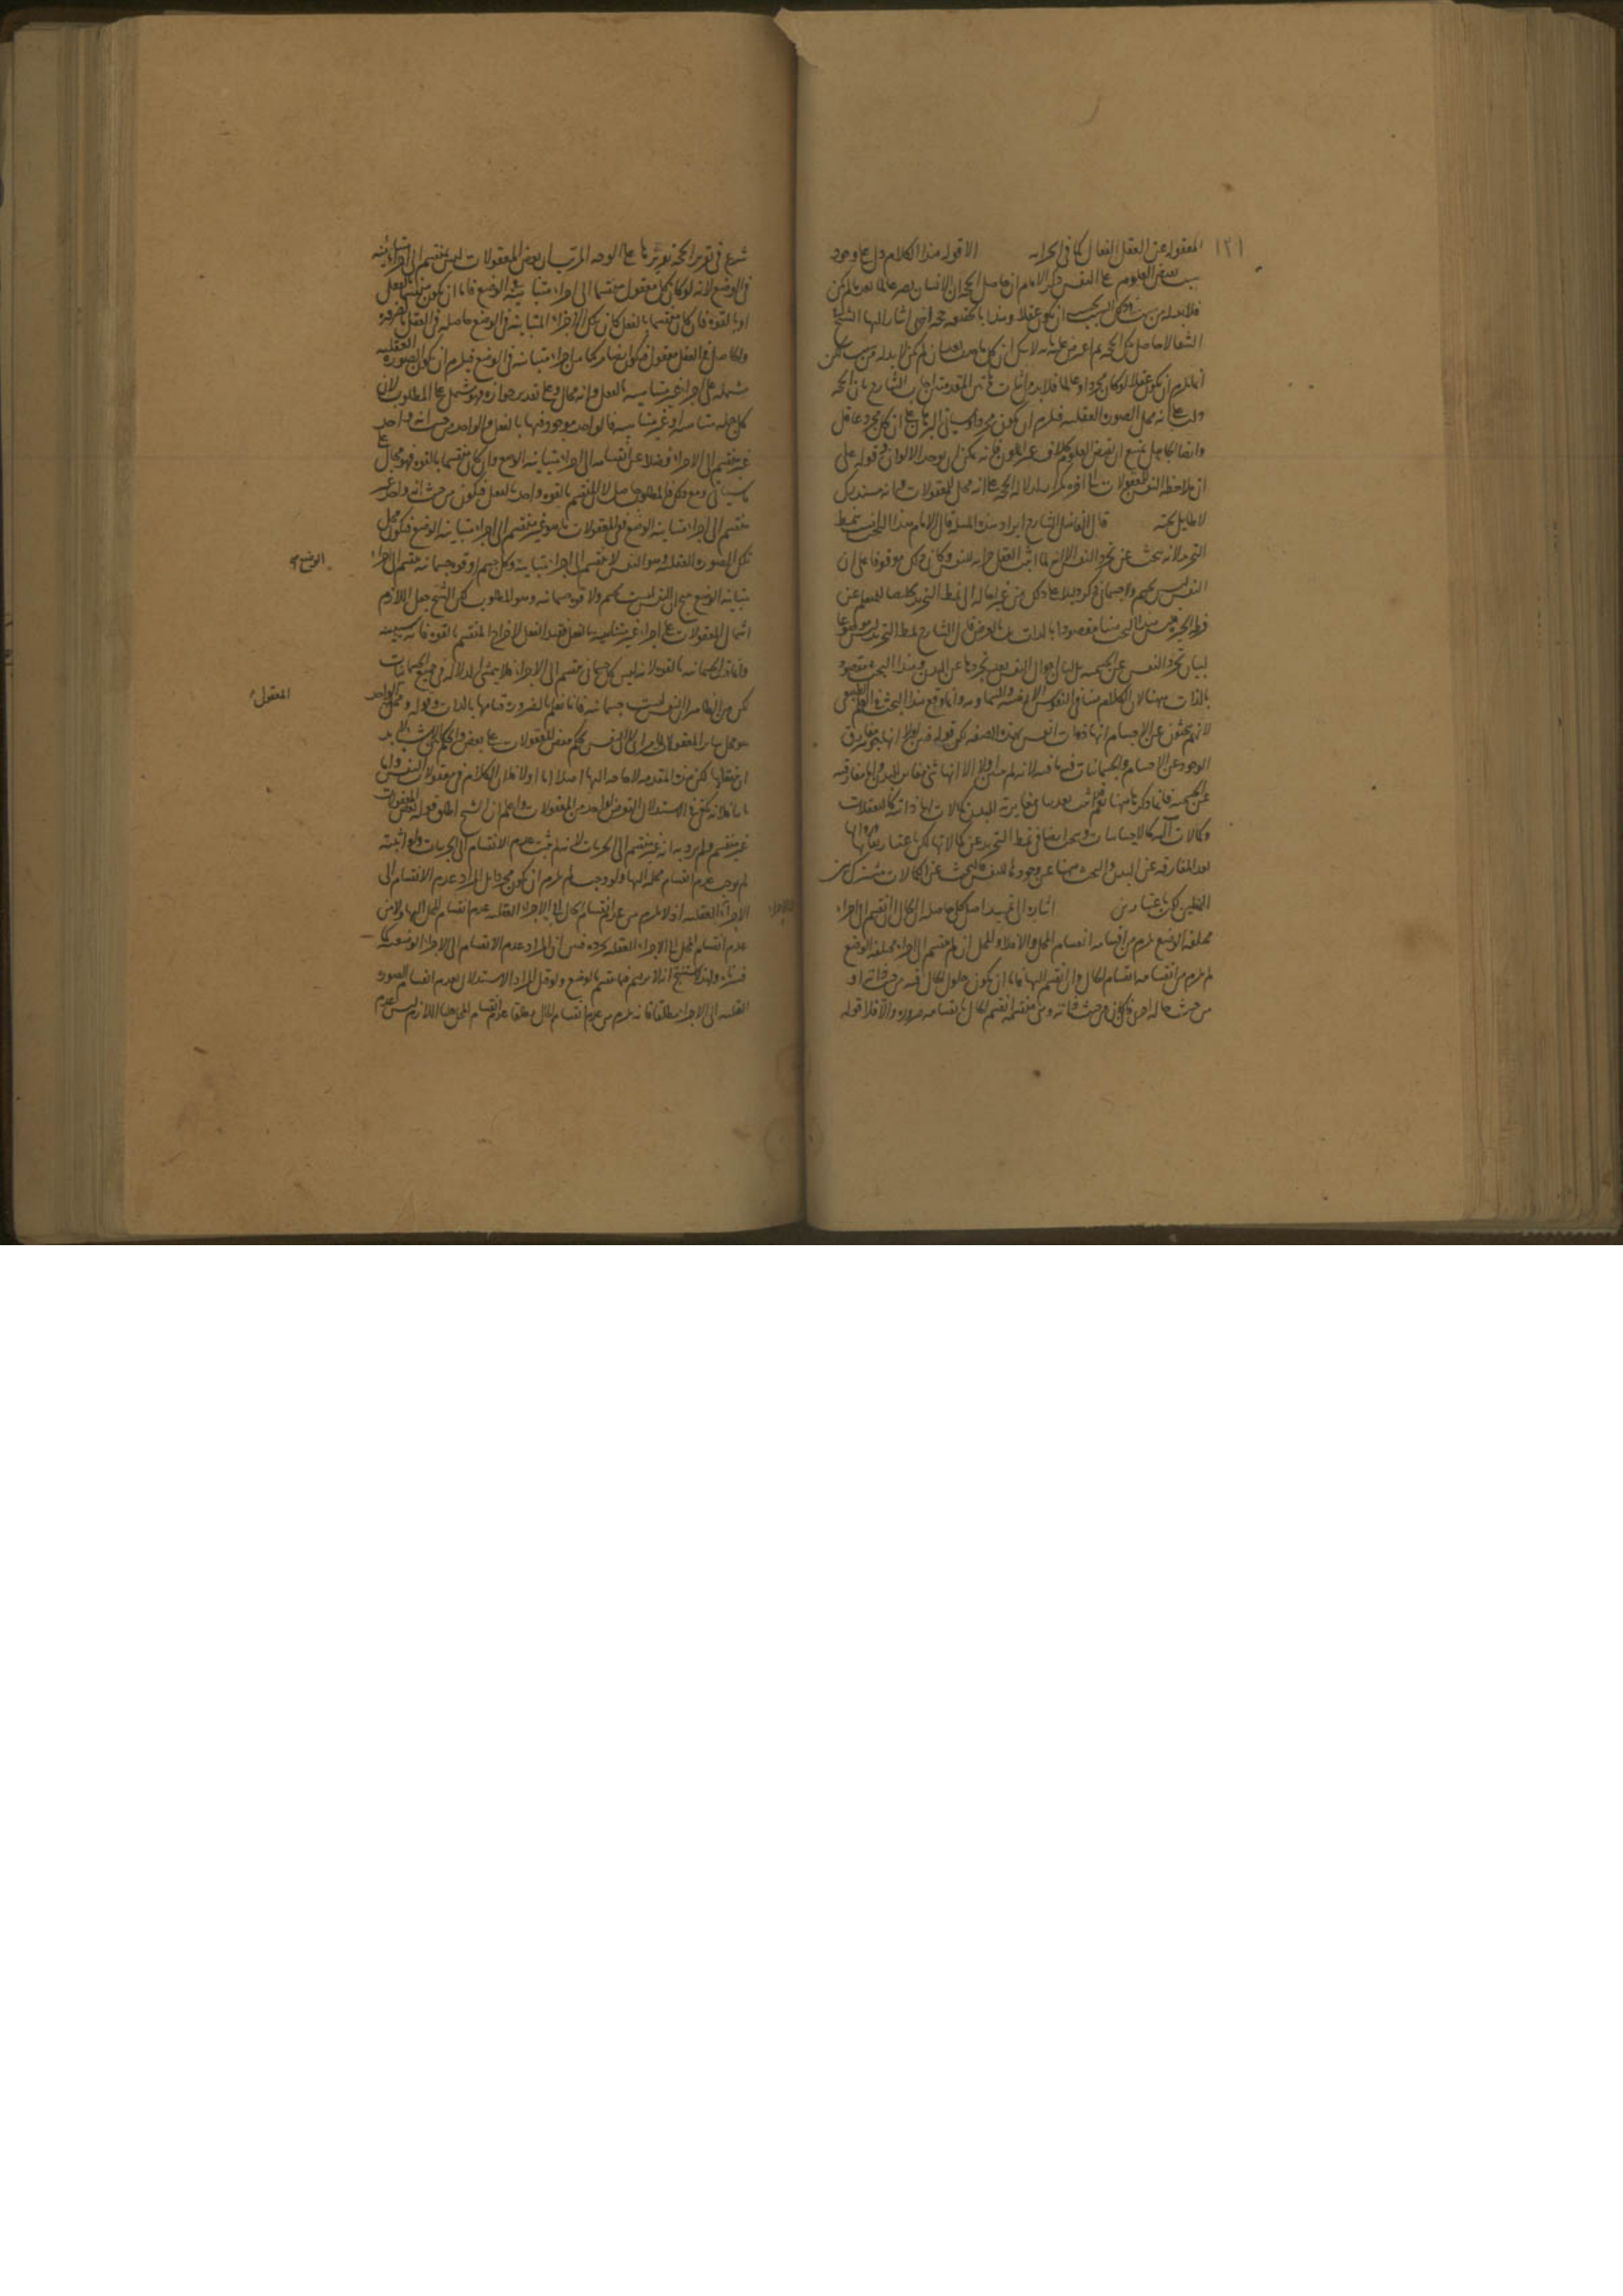 ١٢١
المعقوله عن العقل الفعال كما فى الخزانه الا قوله هذا الكلام دل على وجود
سبب يفيض العلوم على النفس ذكر الامام ان حاصل الحجه ان الانسان يصير عالما بعد ما لم يكن
فلا بد له من سبب وذلك السبب يجب ان يكون عقلا وهذا بالحقيقه حجه اخرى اشار اليها الشيخ فى
الشفا لا حاصل تلك الحجه ثم اعترض عليه بانه لا شك ان كل ما حدث بعد ان لم يكن لا بد له من سبب لكن
انما يلزم ان يكون عقلا لو كان مجردا وعالما فلا بد من اثبات هاتين المقدمتين اجاب الشارح بان الحجه
دلت على انه محل الصور العقليه فيلزم ان يكون مجردا وسياتى البرهان على ان كل مجرد عاقل
وايضا الجاهل يمتنع ان يفيض العلوم بخلاف غير الملون فانه يمكن ان يوجد الالوان وقوله على
ان ملاحظه النفس المعقولات الى اخره تكرار لدلاله الحجه على انه محل للمعقولات فانه مستدرك
لا طايل تحته قال الفاضل الشارح ايراد هذه المسئله قال الامام هذا البحث انسب بنمط
التجريد لانه بحث عن تجرد النفس الا انه لما اثبت العقل خزانه للنفس وكان ذلك موقوفا على ان
النفس ليس بجسم ولا جسمانى ذكر دليلا على ذلك من غير احاله الى نمط التجريد تخليصا للمتعلم عن
ورطه الحيره فليس هذا البحث هنا مقصودا بالذات بل بالعرض قال الشارح نمط التجريد ليس موضوعا
لبيان تجرد النفس عن الجسميه بل لبيان احوال النفس بعد تجردها عن البدن وهذا البحث مقصود
بالذات ههنا لان الكلام هنا فى النفوس الارضيه والسماويه وانما وقع هذا البحث فى العلم الطبيعى
لانهم يبحثون عن الاجسام انها ذوات انفس بهذه الصفه لكن قوله فبين اولا انها جوهر مفارق
الوجود عن الاجسام والجسمانيات فيه ما فيه لانه لم يبين اولا الا انها شىء مغاير للبدن واما مفارقته
عن الجسميه فانما ذكرنا ههنا ثم اثبت بعد بيان مغايرته البدن كمالات لها ذاتيه كالتعقلات
وكمالات آليه كالاحساسات وبحث ايضا فى نمط التجريد عن كمالاتها لكن باعتبار بقائها
بعد المفارقه عن البدن والبحث ههنا عن وجودها للنفس فالبحث عن الكمالات مشترك بين
النمطين لكن باعتبارين اشاره ان تريد اصل كل حاصله ان الحال ان انقسم الى اجزاء
مختلفه الوضع يلزم من انقسامه انقسام المحل والا فلا والمحل ان لم ينقسم الى اجزاء مختلفه الوضع
لم يلزم من انقسامه انقسام الحال وان انقسم اليها فاما ان يكون حلول الحال فيه من حيث ذاته او
من حيث حاله اخرى فان كان من حيث ذاته وهى منقسمه انقسم الحال بانقسامه ضروره والا فلا قوله
شرع فى تقرير الحجه تقريرها على الوجه المرتب ان بعض المعقولات ليس بمنقسم الى اجزاء متباينه
فى الوضع لانه لو كان كل معقول منقسما الى اجزاء متباينه فى الوضع فاما ان يكون منقسما بالفعل
او بالقوه فان كان منقسما بالفعل كان تلك الاجزاء المتباينه فى الوضع حاصله فى العقل بالضروره
والحاصل فى العقل معقول فيكون ايضا مركبا من اجزاء متباينه فى الوضع فيلزم ان يكون الصوره العقليه
مشتمله على اجزاء غير متناهيه بالفعل وانه محال وعلى تقدير جوازه فهو مشتمل على المطلوب لان
كل جمله متناهيه او غير متناهيه فالواحد موجود فيها بالفعل والواحد من حيث انه واحد
غير منقسم الى الاجزاء فضلا عن انقسامه الى اجزاء متباينه الوضع وان كان منقسما بالقوه فهو محال على
ما سياتى ومع ذلك فالمطلوب حاصل لان المنقسم بالقوه واحد بالفعل فيكون من حيث انه واحد غير
منقسم الى اجزاء متباينه الوضع ففى المعقولات ما هو غير منقسم الى اجزاء متباينه الوضع فيكون محل
تلك الصوره العقليه وهو النفس لا ينقسم الى اجزاء متباينه وكل جسم او قوه جسمانيه منقسم الى اجزاء
الوضع
متباينه الوضع ينتج ان النفس ليست بجسم ولا قوه جسمانيه وهو المطلوب لكن الشيخ جعل اللازم
اشتمال المعقولات على اجزاء غير متناهيه بالفعل فقيد الفعل لاخراج المنقسم بالقوه فانه سيبينه
وانما قال جسمانيه بالقوه لانه ليس كل جسمانى ينقسم الى الاجزاء فلا يتمشى الدلاله فى جميع الجسمانيات
لكن من الظاهر ان النفس ليست جسمانيه فانا نعلم بالضروره قيامها بالذات وقوله ومحل الواحد
المعقول
هو محل ساير المعقولات لان النفس تحكم ببعض المعقولات على بعض والحاكم بين الشيئين لا بد
ان يعقلهما لكن هذه المقدمه لا حاجه اليها اصلا اما اولا فلان الكلام فى معقولات النفس واما
ثانيا فلانه يكفى فى الاستدلال التعرض لواحد من المعقولات واعلم ان الشيخ اطلق قوله بعض المعقولات
غير منقسم ولم يرد به انه غير منقسم الى الجزئيات لانه لم يثبت عدم الانقسام الى الجزئيات ولو اثبته
لم يوجب عدم انقسام محله اليها ولو وجب لم يلزم ان يكون مجردا بل المراد عدم الانقسام الى
الاجزاء لا العقليه اذ لا يلزم من عدم انقسام الحال الى الاجزاء العقليه عدم انقسام المحل اليها ولا من
عدم انقسام المحل الى الاجزاء العقليه تجرده فتبين ان المراد عدم الانقسام الى الاجزاء الوضعيه كما
قررناه ولهذا استنتج انه لا يرتسم فيما ينقسم بالوضع ولو قيل المراد الاستدلال بعدم انقسام الصوره
العقليه الى الاجزاء مطلقا فانه يلزم من عدم انقسام الحال مطلقا عدم انقسام المحل قلنا اللازم ليس عدم